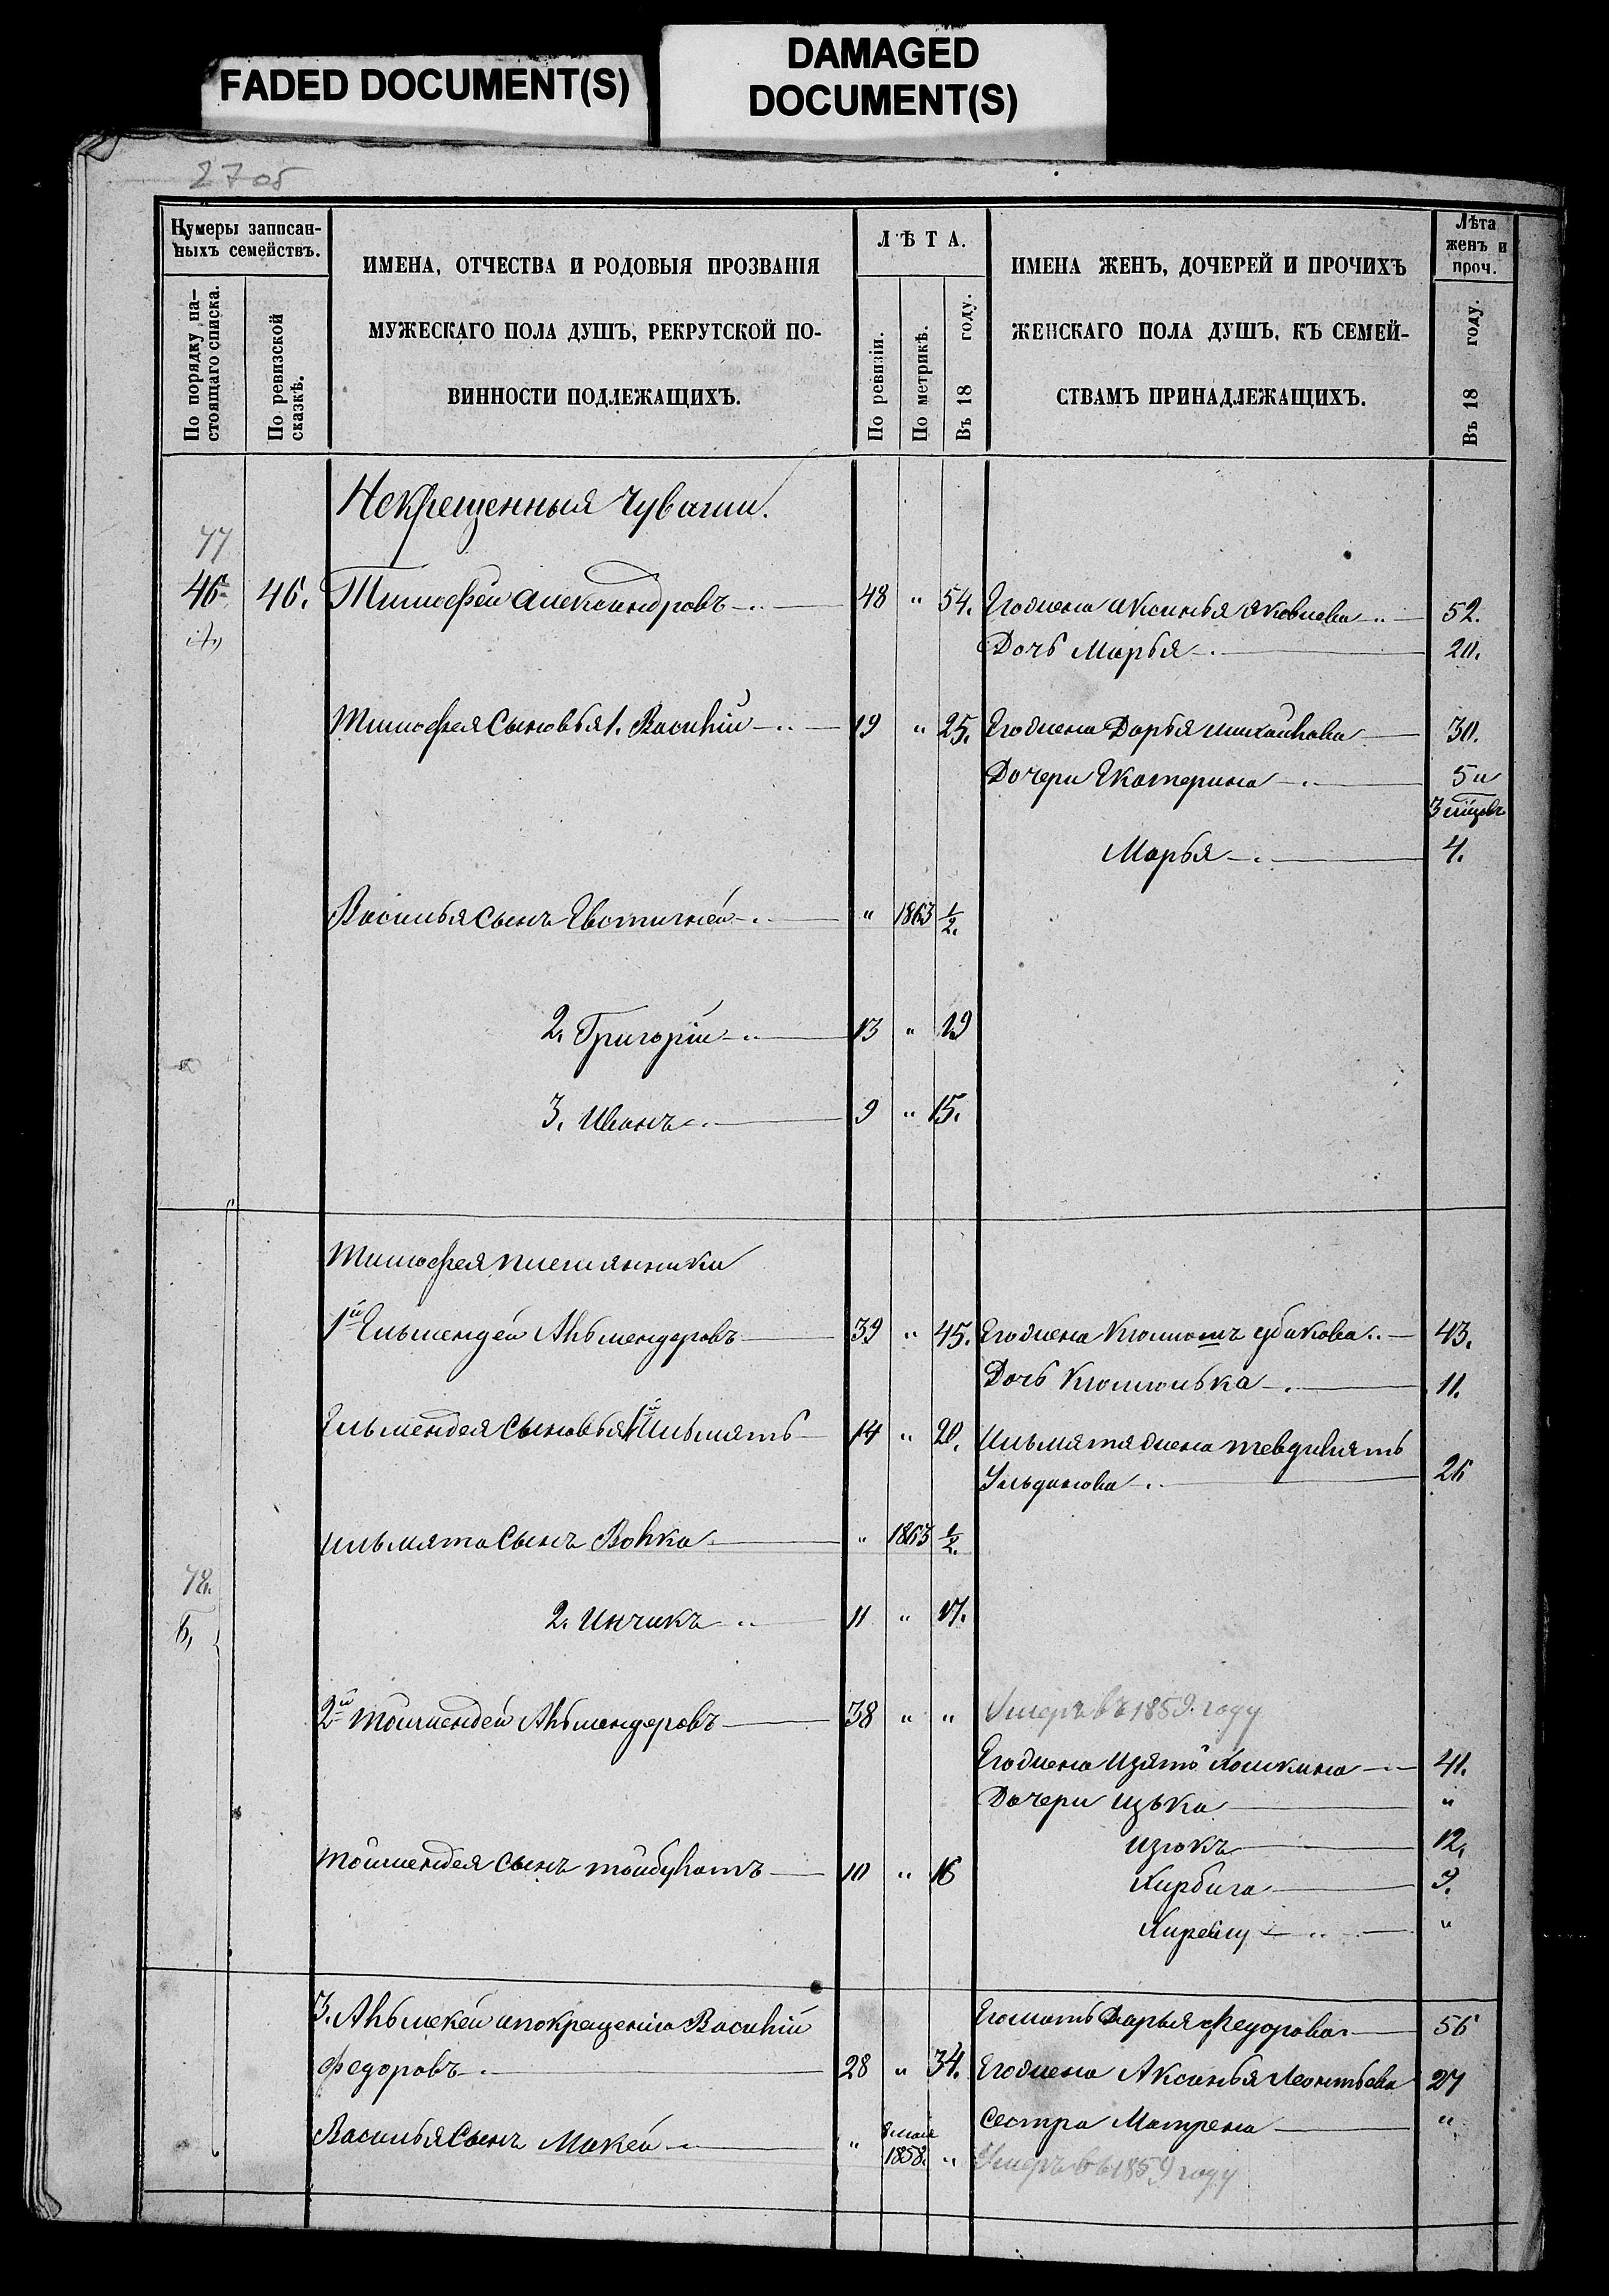 FADED DOCUMENT(S)
DAMAGED
DOCUMENT(S)
2705
Нумеры записан-
ныхъ семействъ.
По порядку на-
стоящаго списка.
По ревизской
сказкѣ.
ИМЕНА, ОТЧЕСТВА И РОДОВЫЯ ПРОЗВАНІЯ
МУЖЕСКАГО ПОЛА ДУШЪ, РЕКРУТСКОЙ ПО-
ВИННОСТИ ПОДЛЕЖАЩИХЪ.
ЛѢТА.
По ревизіи.
По метрикѣ.
Въ 18 году.
ИМЕНА ЖЕНЪ, ДОЧЕРЕЙ И ПРОЧИХЪ
ЖЕНСКАГО ПОЛА ДУШЪ, КЪ СЕМЕЙ-
СТВАМЪ ПРИНАДЛЕЖАЩИХЪ.
Лѣта
женъ и
проч.
Въ 18 году.
Некрещенныя Чуваши.
77
46 46. Тимофей Александровъ 48 " 54. Его жена Аксинья Яковлева 52.
Дочь Марья 20.
Тимофея сыновья 1. Василій 19 " 25. Его жена Дарья Михайлова 30.
Дочери Екатерина 5 и
3 мѣсяц
Марья 4.
Василья сынъ Евстигнѣй " 1863 1/2.
2. Григорій 13 " 19
3. Иванъ 9 " 15.
Тимофея племянники
1й Ельмендей Альмендеровъ 39 " 45. Его жена 43.
Дочь 11.
Ельмендея сыновья 1й Ильмять 14 " 20. Ильмятя жена
26
Ильмята сынъ Волка " 1863 1/2.
78.
2. Инчикъ 11 " 17.
2й Тоймендей Альмендеровъ 38 " " Умеръ въ 1859. году
Его жена Изять 41.
Дочери Изька "
Изюкъ 12.
Тоймендея сынъ Тойбулатъ 10 " 16
Хирбига 9.
"
3. Альмекей а по крещенію Василій Его мать Дарья Федорова 56
Федоровъ 28 " 34. Его жена Аксинья Леонтьева 27
Сестра Матрена "
Василья сынъ Мокей " 8 мая
1858. " Умеръ въ 1859 году